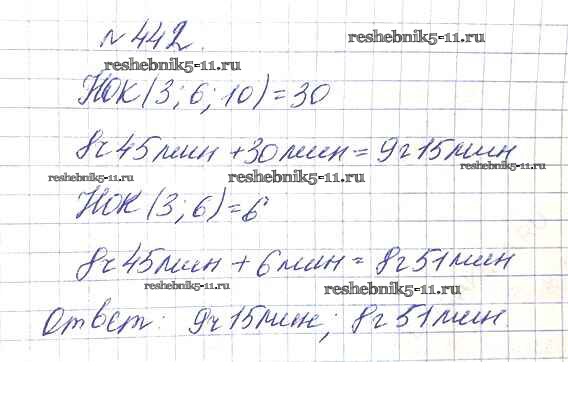 № 442.
reshebnik5-11.ru
reshebnik5-11.ru
НОК(3; 6; 10) = 30
8ч 45мин + 30мин = 9ч 15мин
reshebnik5-11.ru
reshebnik5-11.ru
reshebnik5-11.ru
НОК(3; 6) = 6
8ч 45мин + 6мин = 8ч 51мин
reshebnik5-11.ru
reshebnik5-11.ru
Ответ: 9ч 15мин; 8ч 51мин.